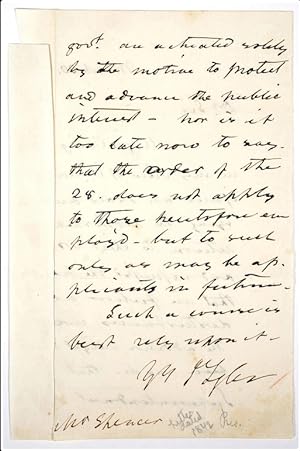 govt. are actuated solely
by the motive to protect
and advance the public
interest - nor is it
too late now to say
that the order of the
28. does not apply
to those heretofore em
ployd - but to such
only as may be ap
plicants in future -
Such a course is
best rely upon it -
Yrs J Tyler
Mr Spencer
1842 Pres.